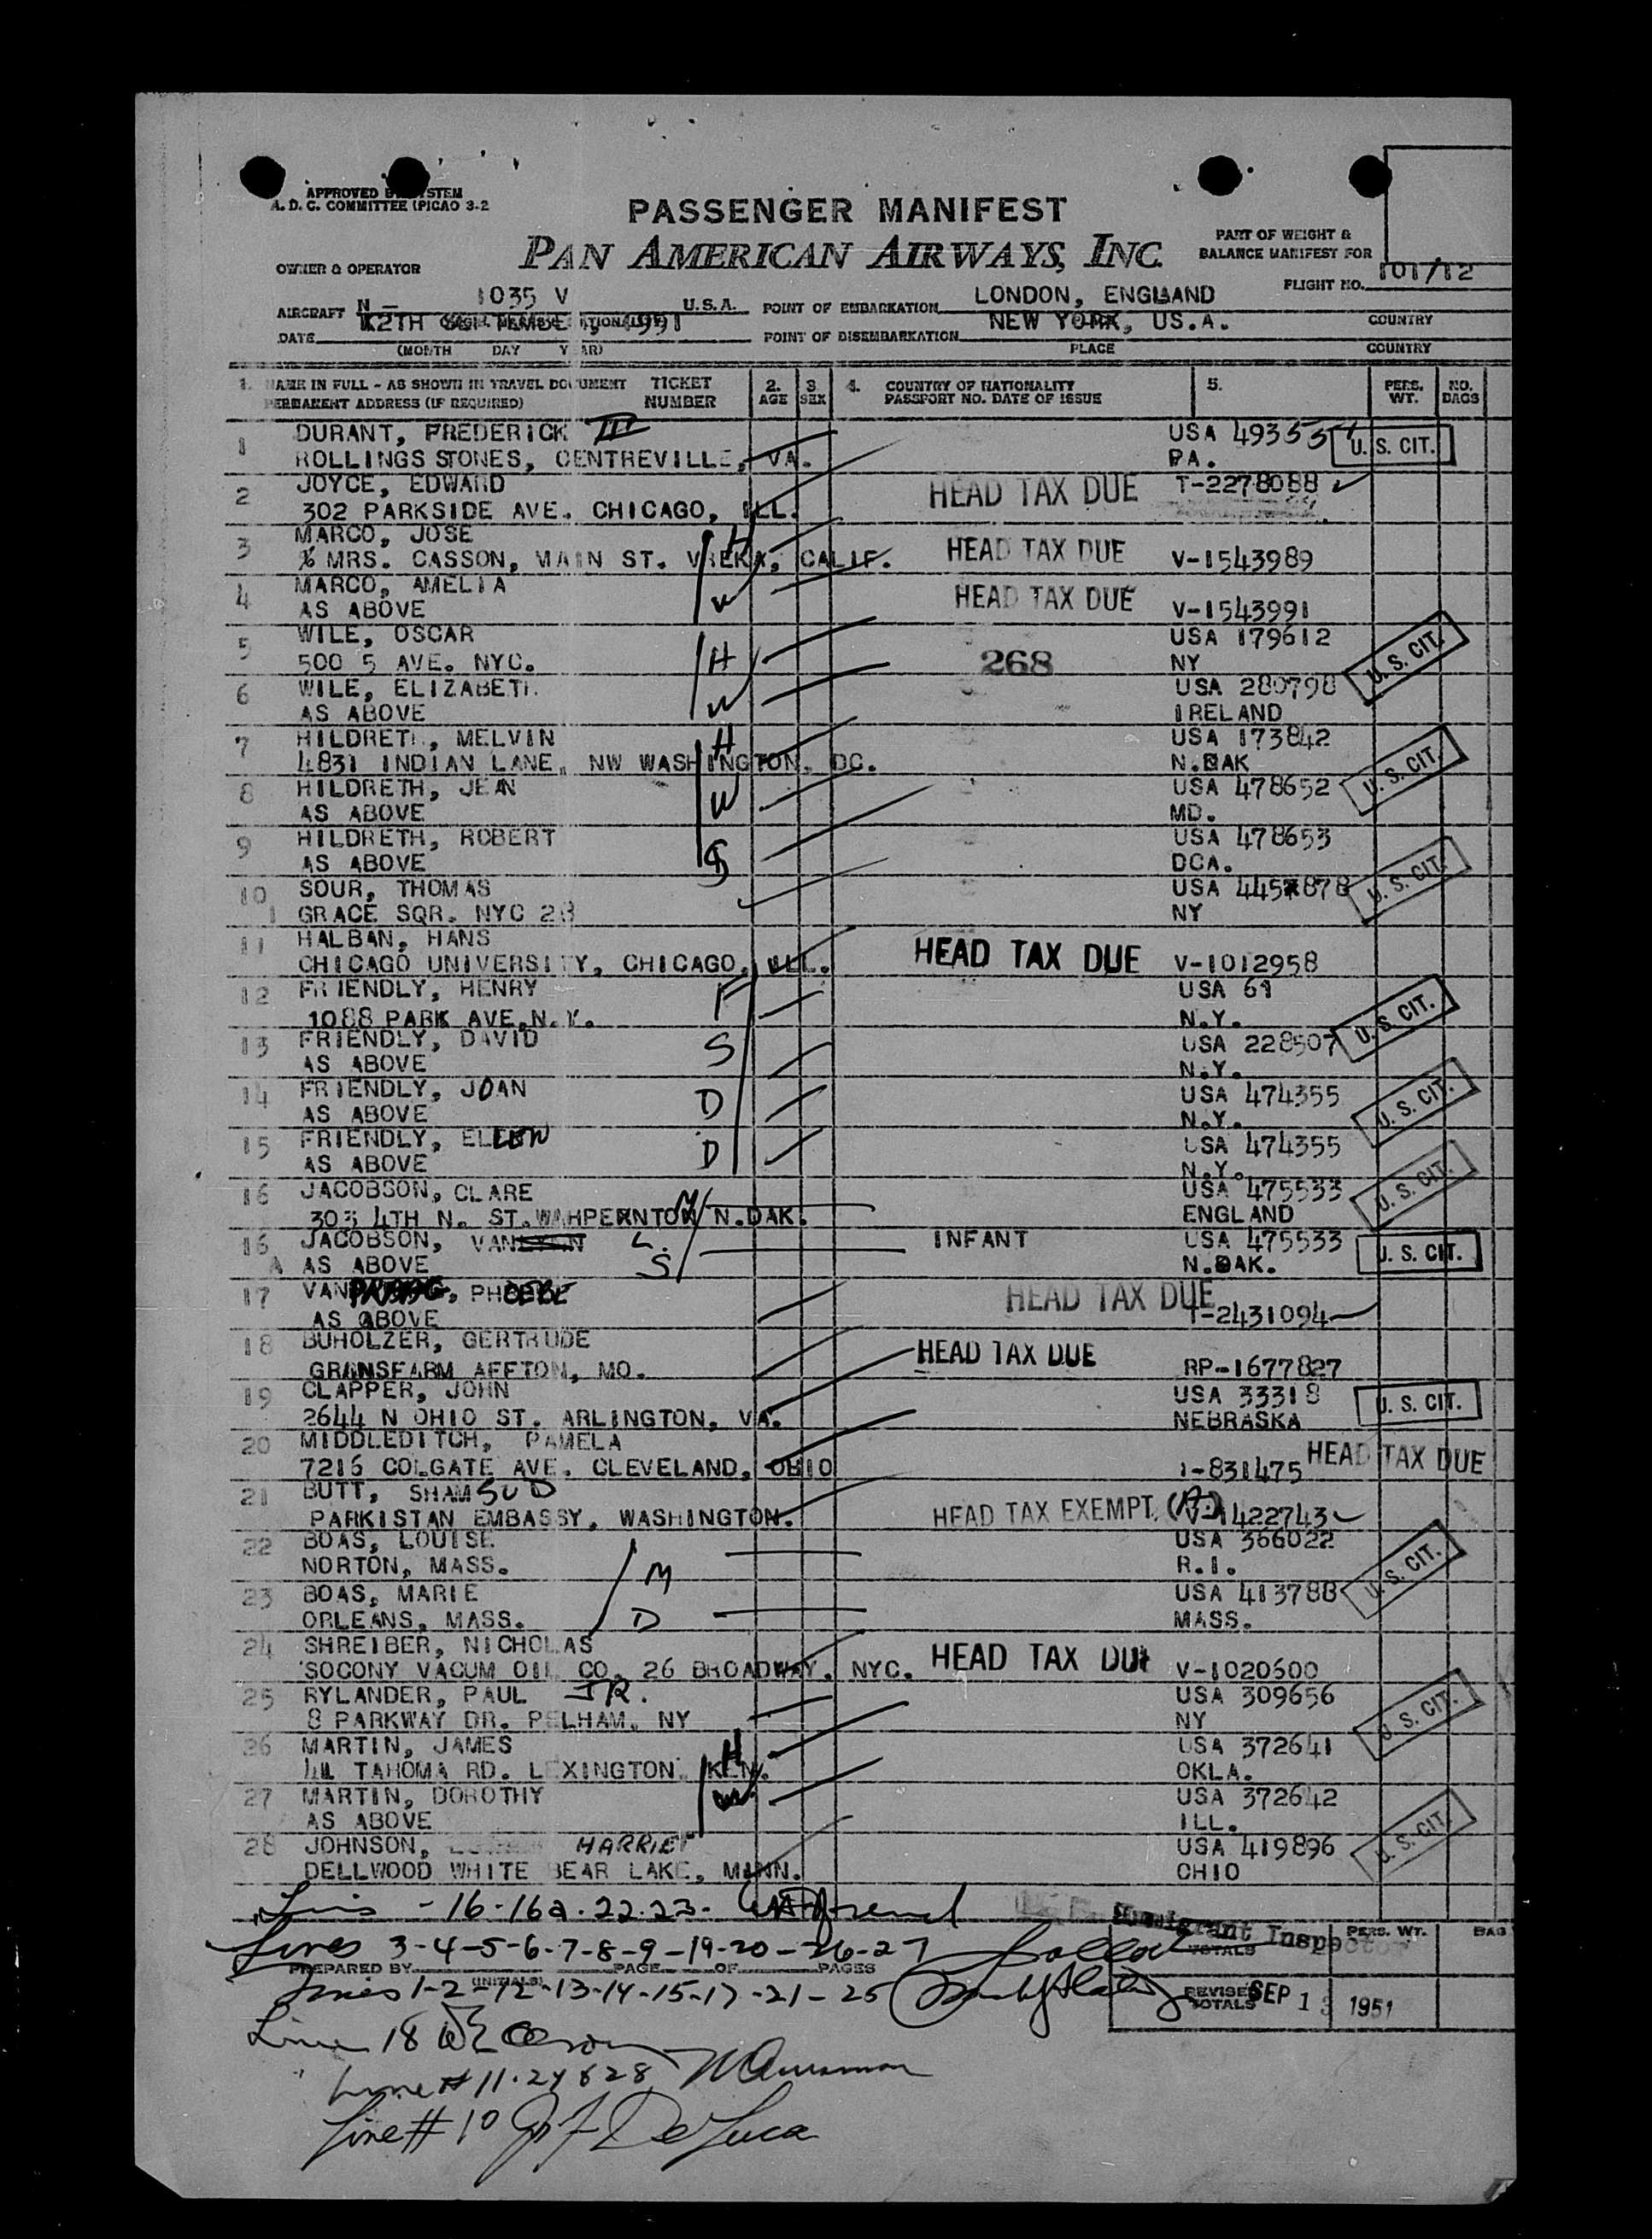 APPROVED B STEM
A. D. C. COMMITTEE (PICAO 3-2
PASSENGER MANIFEST
PAN AMERICAN AIRWAYS, INC.
PART OF WEIGHT &
BALANCE MANIFEST FOR
OWNER & OPERATOR
FLIGHT NO. 101/12
AIRCRAFT N - 1035 V U.S.A. POINT OF EMBARKATION LONDON, ENGLAND
DATE POINT OF DISEMBARKATION NEW YORK, US.A. COUNTRY
(MONTH DAY YEAR) PLACE COUNTRY
1. NAME IN FULL - AS SHOWN IN TRAVEL DOCUMENT TICKET 2. 3. 4. COUNTRY OF NATIONALITY 5. PERS. NO.
PERMANENT ADDRESS (IF REQUIRED) NUMBER AGE SEX PASSPORT NO. DATE OF ISSUE WT. BAGS
1 DURANT, FREDERICK III USA 493554 U.S. CIT.
ROLLINGS STONES, CENTREVILLE, VA. PA.
2 JOYCE, EDWARD HEAD TAX DUE T-2278088
302 PARKSIDE AVE. CHICAGO, ILL.
3 MARCO, JOSE H HEAD TAX DUE
% MRS. CASSON, MAIN ST. VREKA, CALIF. V-1543989
4 MARCO, AMELIA W HEAD TAX DUE
AS ABOVE V-1543991
5 WILE, OSCAR H USA 179612 U.S. CIT.
500 5 AVE. NYC. 268 NY
6 WILE, ELIZABETH W USA 280798
AS ABOVE IRELAND
7 HILDRETH, MELVIN H USA 173842
4831 INDIAN LANE, NW WASHINGTON, DC. N.DAK U.S. CIT.
8 HILDRETH, JEAN W USA 478652
AS ABOVE MD.
9 HILDRETH, ROBERT S USA 478653
AS ABOVE DCA.
10 SOUR, THOMAS USA 878 U.S. CIT.
1 GRACE SQR. NYC 28 NY
11 HALBAN, HANS HEAD TAX DUE
CHICAGO UNIVERSITY, CHICAGO, ILL. V-1012958
12 FRIENDLY, HENRY F USA 61
1088 PARK AVE.N.Y. N.Y. U.S. CIT.
13 FRIENDLY, DAVID S USA 228507
AS ABOVE N.Y.
14 FRIENDLY, JOAN D USA 474355
AS ABOVE N.Y. U.S. CIT.
15 FRIENDLY, ELLEN D USA 474355
AS ABOVE N.Y.
16 JACOBSON, CLARE M USA 475533 U.S. CIT.
303 4TH N. ST. N.DAK. ENGLAND
16 JACOBSON, VAN L. INFANT USA 475533
A AS ABOVE S N.DAK. U.S. CIT.
17 VAN , PHOEBE HEAD TAX DUE
AS ABOVE T-2431094
18 BUHOLZER, GERTRUDE HEAD TAX DUE
GRANSFARM AFFTON, MO. RP-1677827
19 CLAPPER, JOHN USA 33318
2644 N OHIO ST. ARLINGTON, VA. NEBRASKA U.S. CIT.
20 MIDDLEDITCH, PAMELA HEAD TAX DUE
7216 COLGATE AVE. CLEVELAND, OHIO I-831475
21 BUTT, SHAMSUD HEAD TAX EXEMPT.
PARKISTAN EMBASSY, WASHINGTON. 1422743
22 BOAS, LOUISE M USA 366022
NORTON, MASS. R.I. U.S. CIT.
23 BOAS, MARIE D USA 413788
ORLEANS, MASS. MASS.
24 SHREIBER, NICHOLAS HEAD TAX DUE
SOCONY VACUM OIL CO. 26 BROADWAY, NYC. V-1020600
25 RYLANDER, PAUL JR. USA 309656
8 PARKWAY DR. PELHAM, NY NY U.S. CIT.
26 MARTIN, JAMES H USA 372641
TAHOMA RD. LEXINGTON, KEN. OKLA.
27 MARTIN, DOROTHY W USA 372642
AS ABOVE ILL.
28 JOHNSON, HARRIET USA 419896 U.S. CIT.
DELLWOOD WHITE BEAR LAKE, MINN. OHIO
Lines - 16-16a-22-23-
Immigrant Inspector
TOTALS PERS. WT. BAG
Lines 3-4-5-6-7-8-9-19-20-26-27
PREPARED BY (INITIALS) PAGE OF PAGES
Lines 1-2-12-13-14-15-17-21-25
REVISED TOTALS SEP 13 1951
Line 18
Line # 11-24 & 28
Line # 10 De Luca